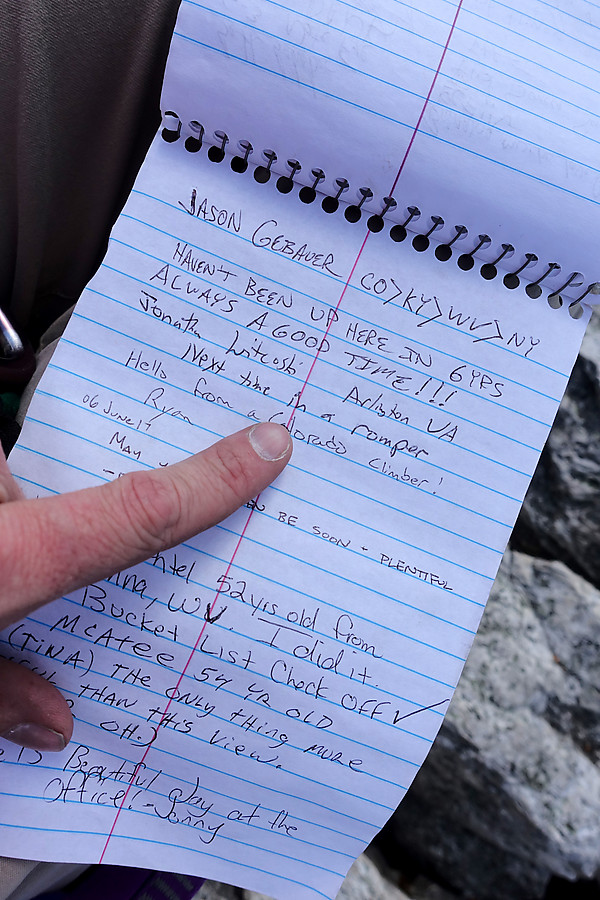 JASON GEBAUER CO>KY>WV>NY
HAVEN'T BEEN UP HERE IN 6 YRS
ALWAYS A GOOD TIME!!!
Arlington VA
Next time in a romper
Hello from a Colorado climber!
Ryan
06 June 17
MAY
BE SOON + PLENTIFUL
52 yrs old from
WV. I did it
Bucket List Check OFF ✓
McAtee 54 YR OLD
(TINA) THE ONLY thing more
THAN THIS View.
OH.)
Beautiful day at the
Office! - Jonny